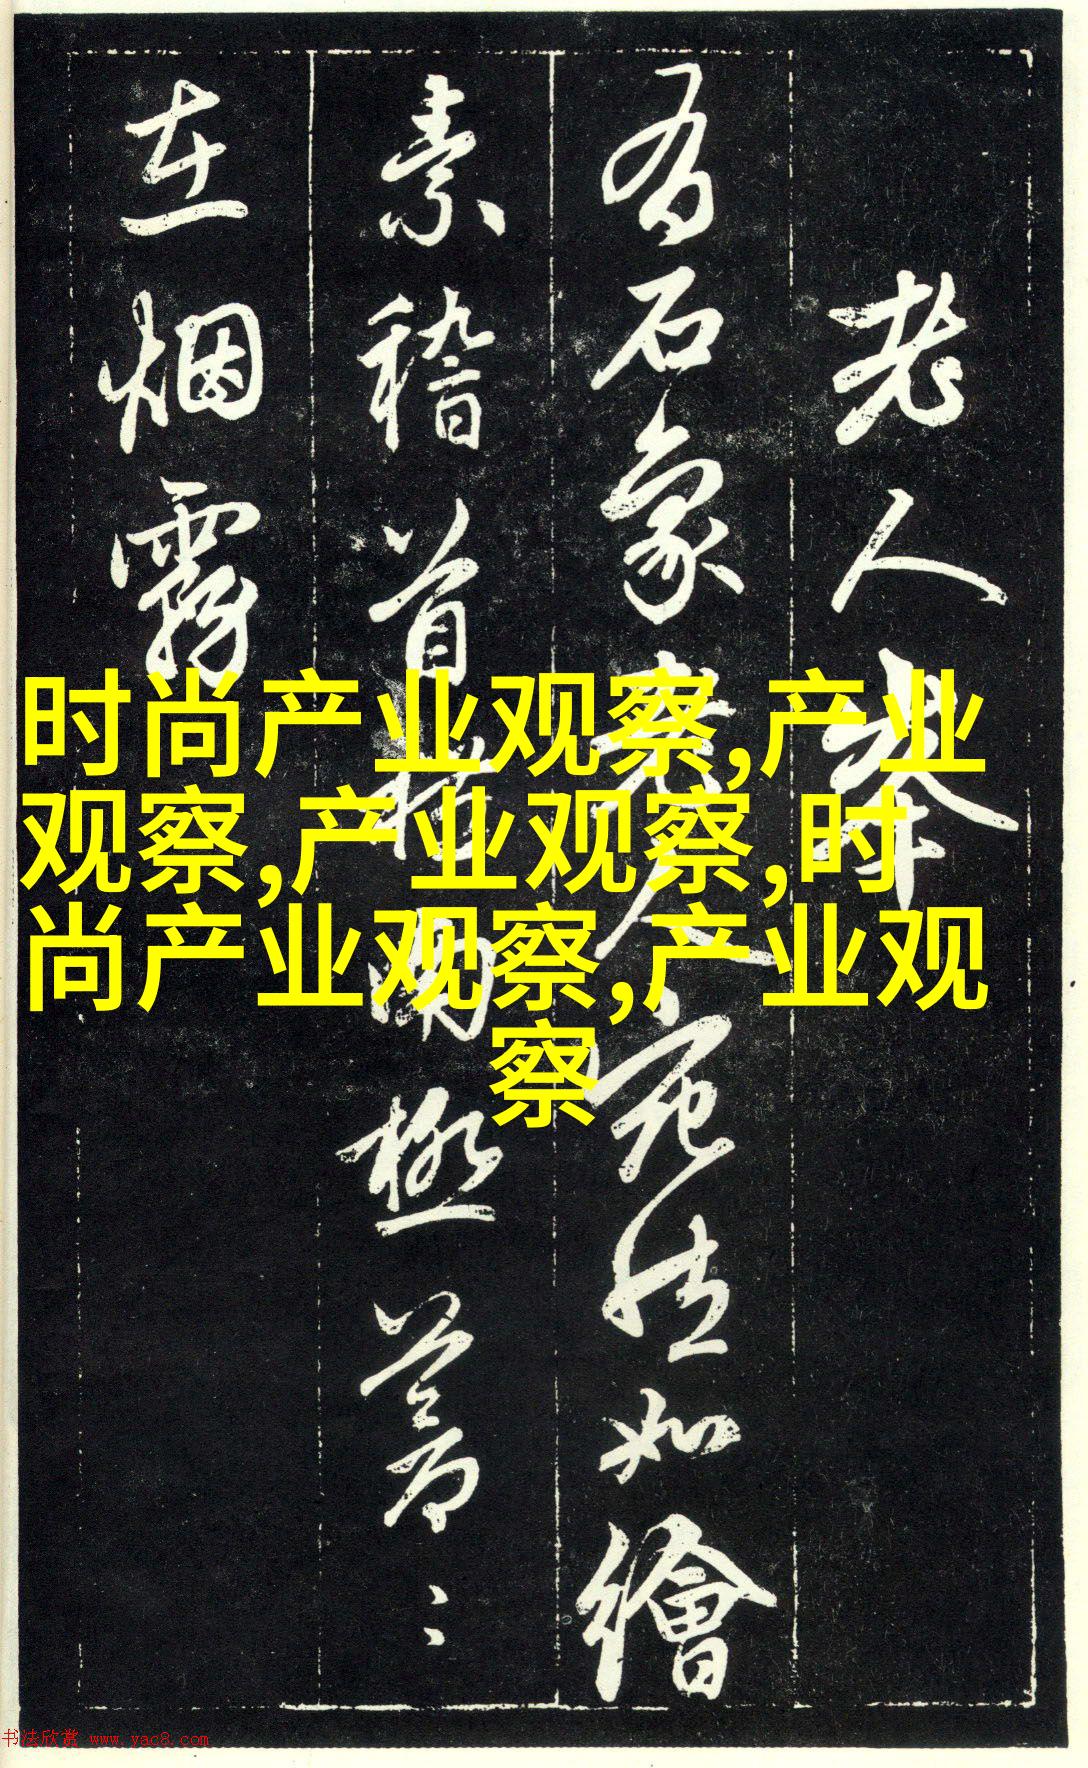 老人峯
有石象老人宛如繪
素稽首極蒼〻
在烟霧
时尚产业观察,产业
观察,产业观察,时
尚产业观察,产业观
察
书法欣赏 www.yac8.com